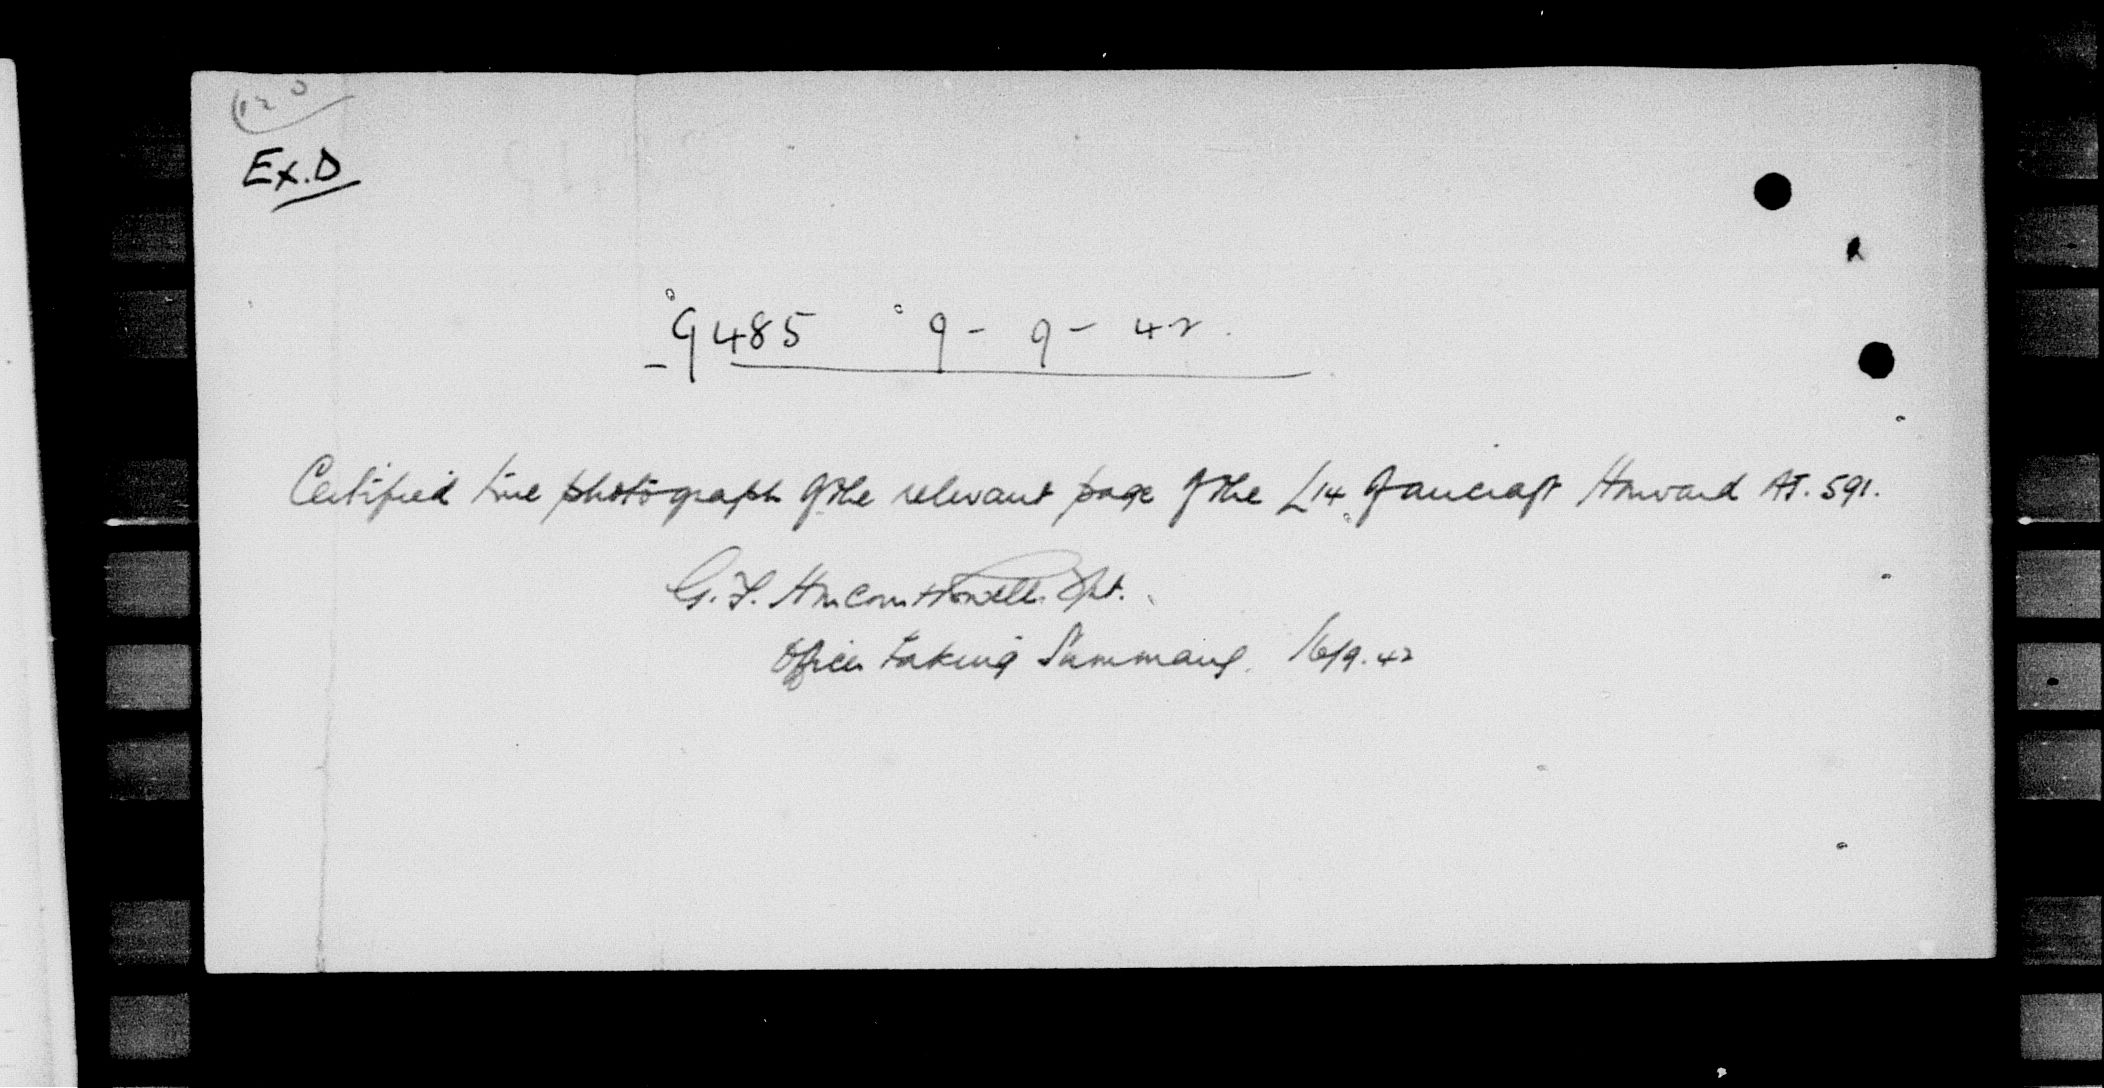 Ex.D
9485 9 - 9 - 42.
Certified true photograph of the relevant page of the L14 of aircraft Harvard AJ. 591.
G. F.
Officer taking Summary. 16/9.42